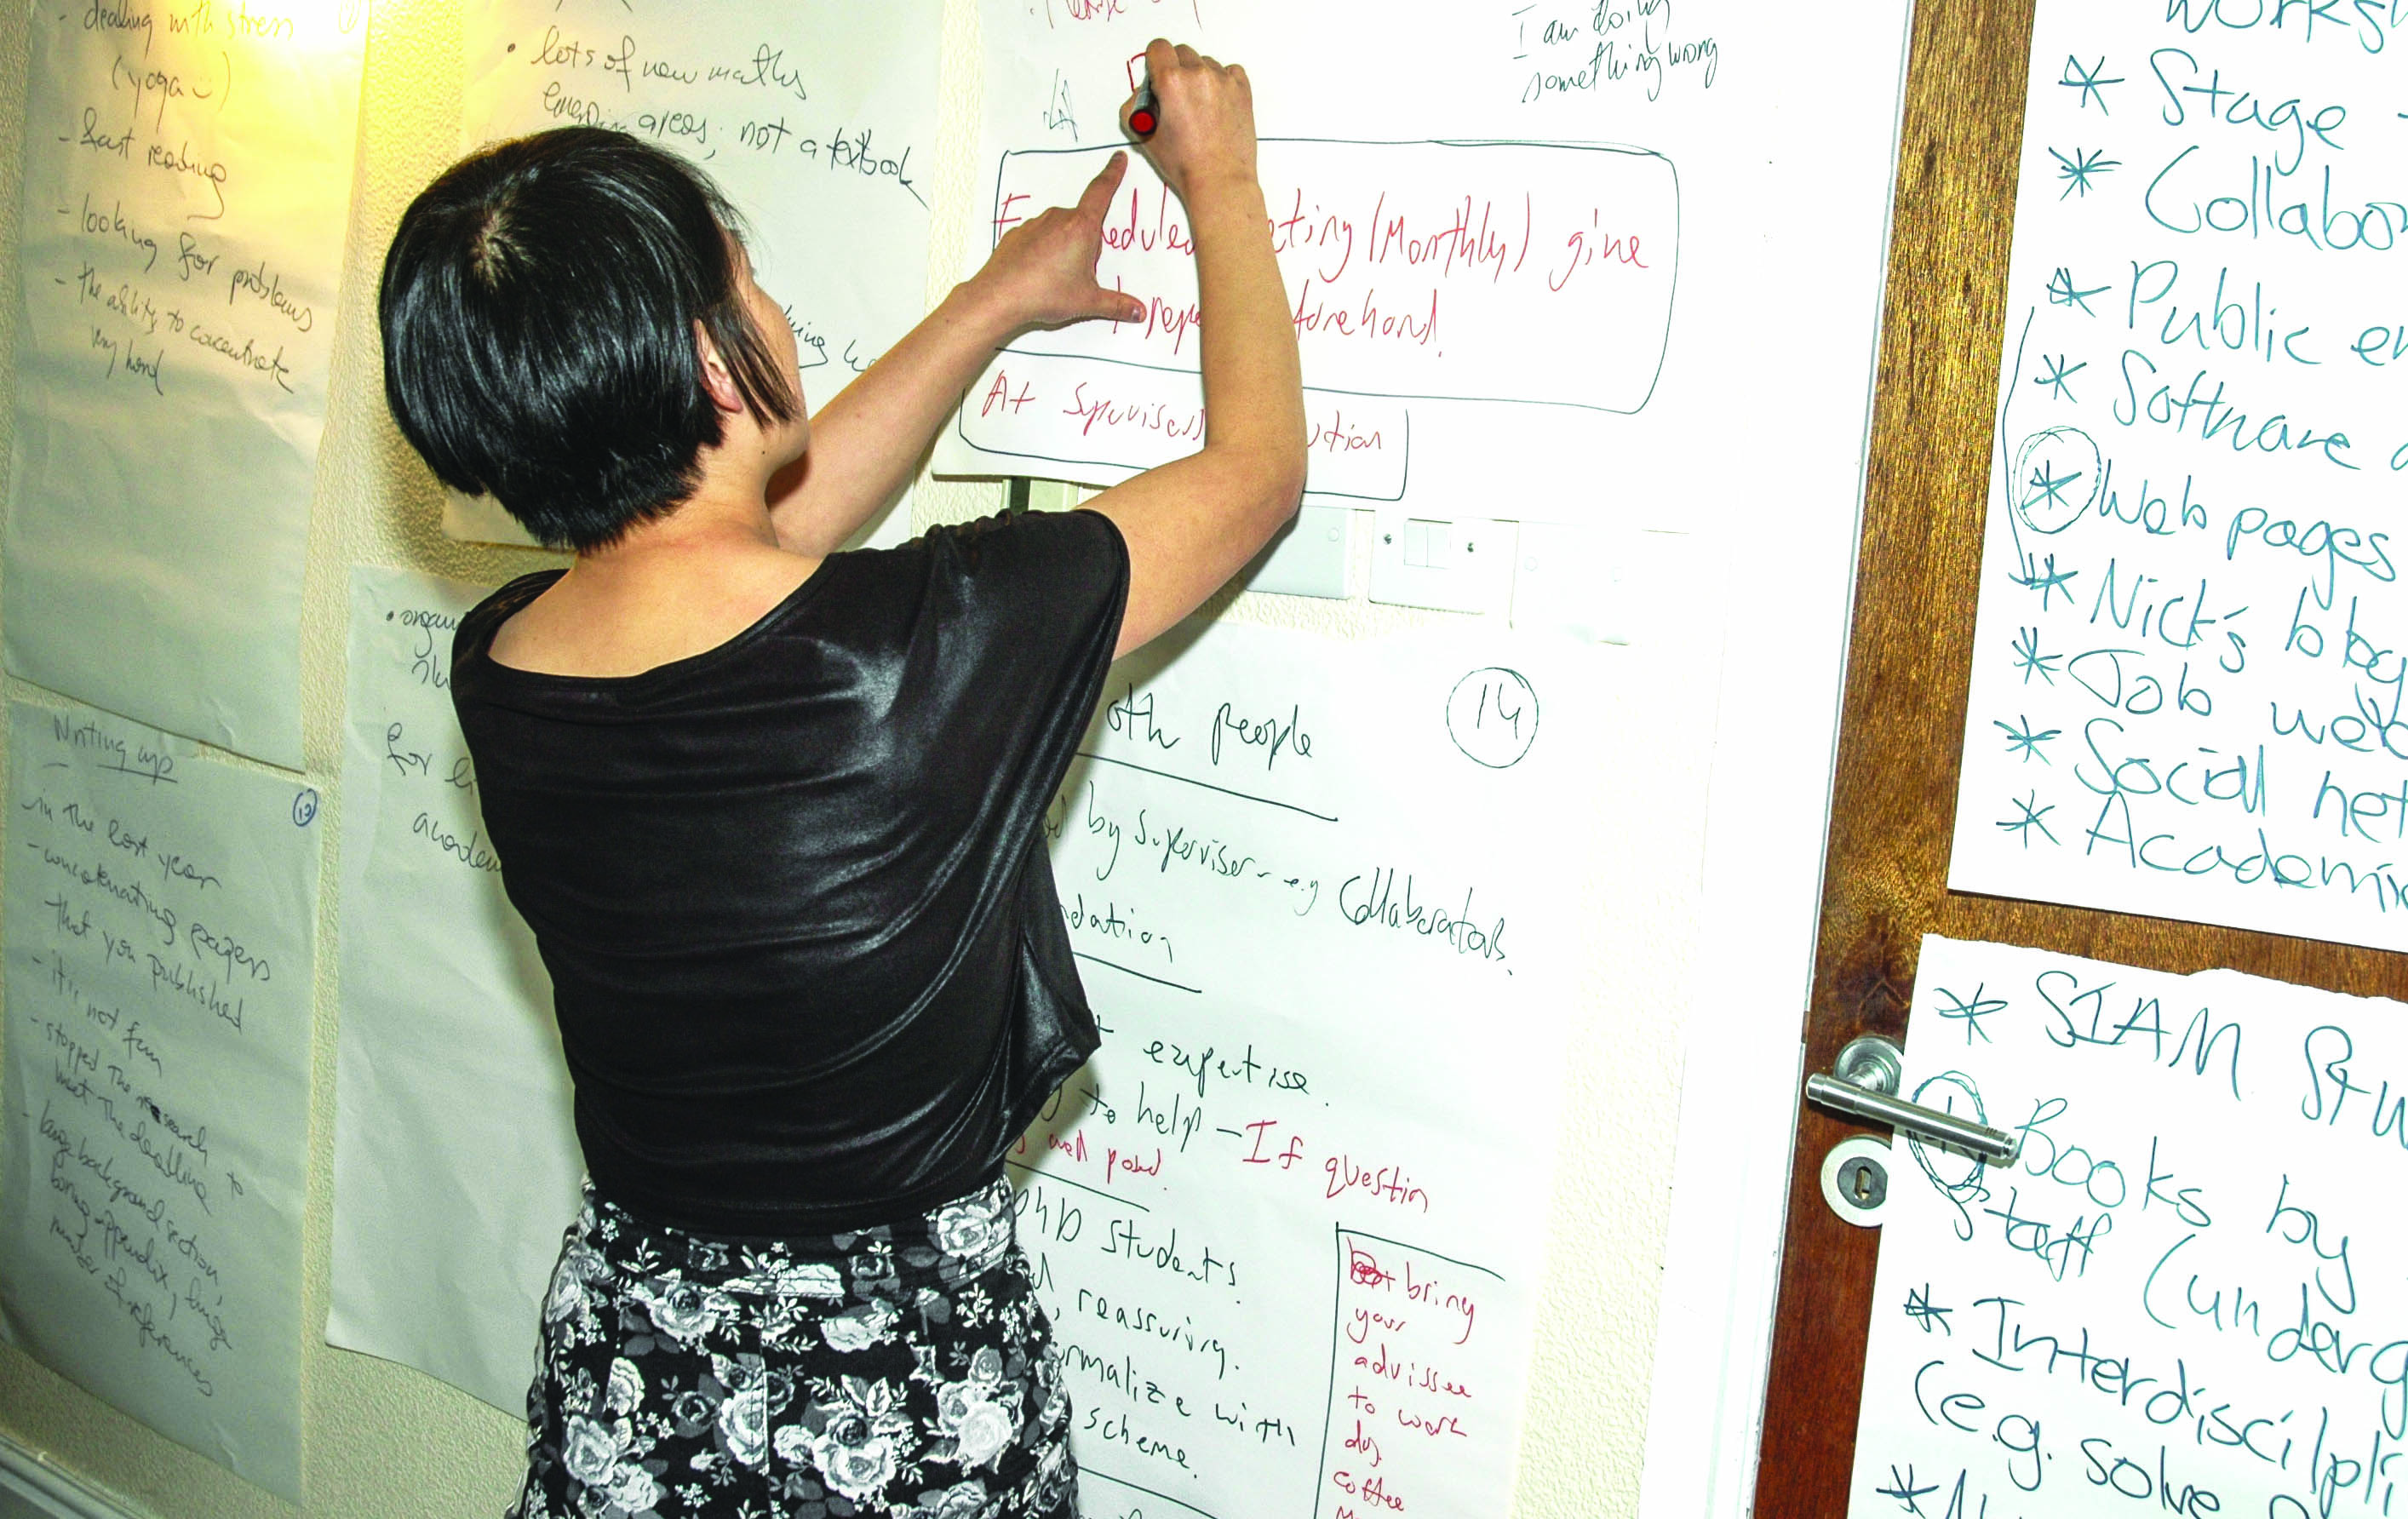 dealing with stress
(yoga
- fast reading
- looking for problems
- the ability to concentrate
very hard
Writing up
- in the last year
- concatenating papers
that you published
- it is not fun
- stopped the research to
meet the deadline
- large background section,
boring appendix, huge
number of references
• lots of new maths
emerging areas; not a textbook
• organi
for li
academ
I am doing
something wrong
eduled eting (Monthly) give
forehand.
At Supervisors
14
oth people
by supervisor - e.g Collaborators.
dation
expertise.
to help - If question
well posed.
PhD students.
, reassuring.
rmalize with
scheme.
bring
your
advissee
to work
day.
coffee
works
* Stage
* Collabo
* Public en
* Software
* Web pages
* Nick's blog
* Job web
* Social net
* Academic
* SIAM Stu
* Books by
staff (underg
* Interdiscipli
(e.g. solve